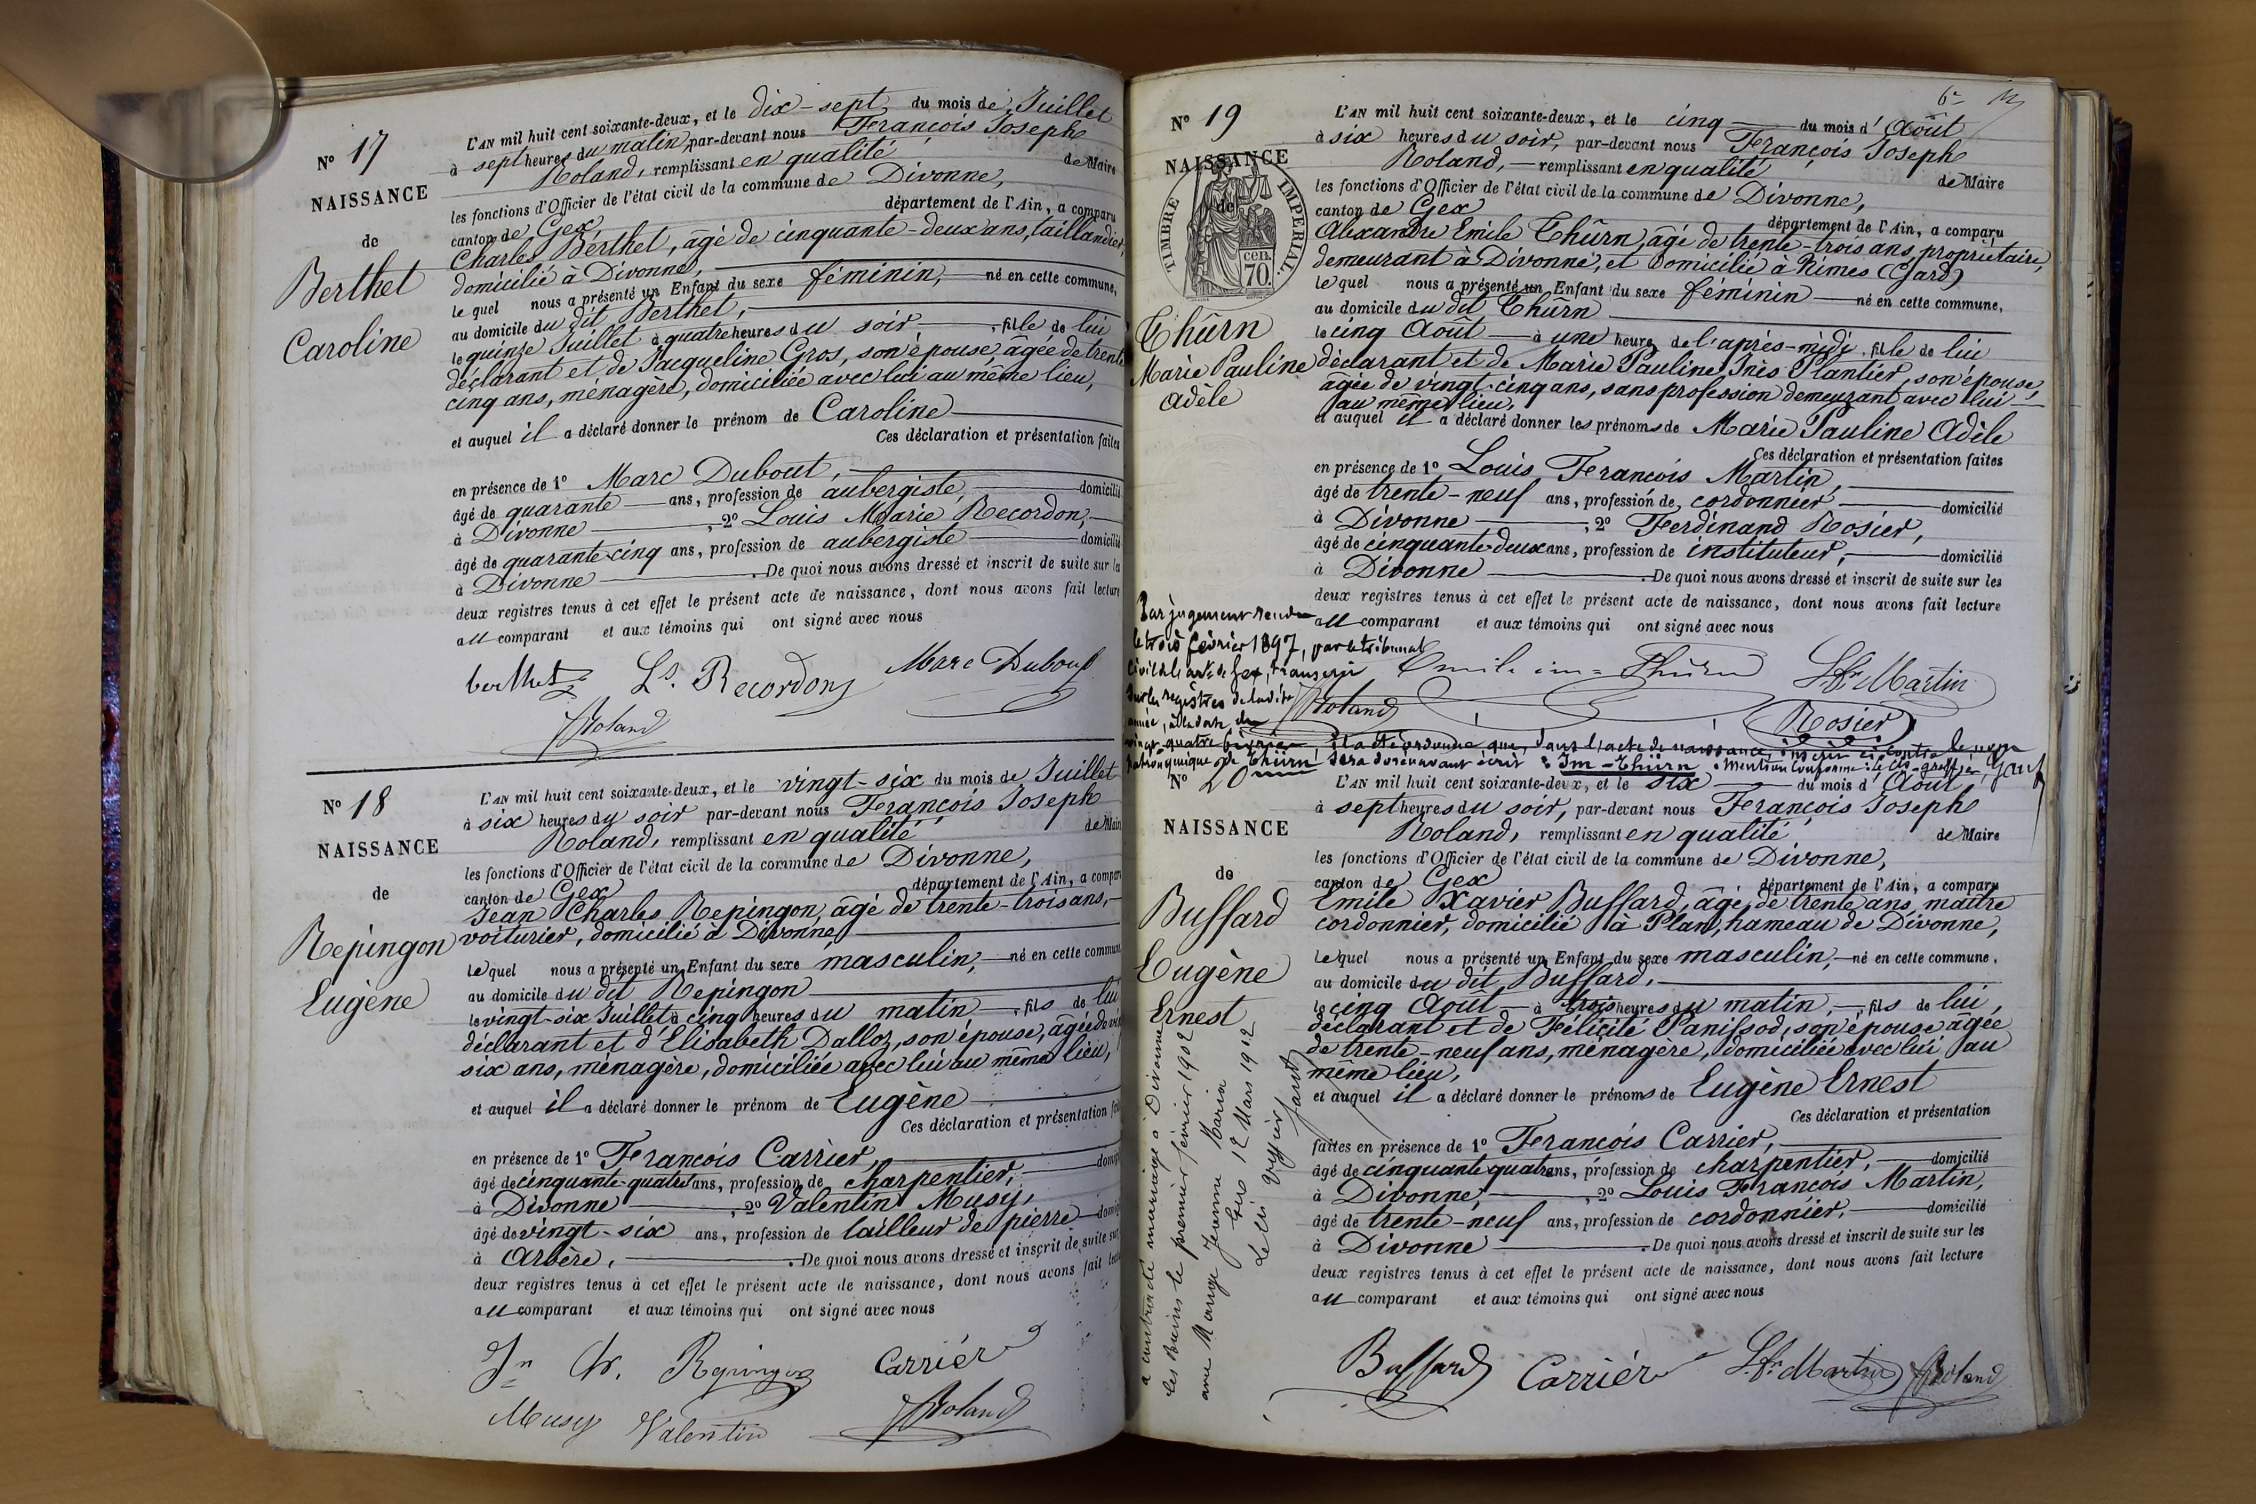 N° 17
NAISSANCE
de
Berthet
Caroline
L'AN mil huit cent soixante-deux, et le dix-sept du mois de Juillet
à sept heures du matin, par-devant nous François Joseph
Roland, remplissant en qualité de Maire
les fonctions d'Officier de l'état civil de la commune de Divonne,
canton de Gex département de l'Ain, a comparu
Charles Berthet, âgé de cinquante-deux ans, taillandier,
domicilié à Divonne,
le quel nous a présenté un Enfant du sexe féminin, né en cette commune,
au domicile du dit Berthet,
le quinze Juillet à quatre heures du soir, fille de lui
déclarant et de Jacqueline Gros, son épouse, âgée de trente
cinq ans, ménagère, domiciliée avec lui au même lieu,
et auquel il a déclaré donner le prénom de Caroline
Ces déclaration et présentation faites
en présence de 1° Marc Dubout,
âgé de quarante ans, profession de aubergiste, domicilié
à Divonne, 2° Louis Marie Recordon,
âgé de quarante-cinq ans, profession de aubergiste domicilié
à Divonne. De quoi nous avons dressé et inscrit de suite sur les
deux registres tenus à cet effet le présent acte de naissance, dont nous avons fait lecture
au comparant et aux témoins qui ont signé avec nous
berthet Ls. Recordon Marc Dubout
Roland
N° 18
NAISSANCE
de
Repingon
Eugène
L'AN mil huit cent soixante-deux, et le vingt-six du mois de Juillet
à six heures du soir par-devant nous François Joseph
Roland, remplissant en qualité de Maire
les fonctions d'Officier de l'état civil de la commune de Divonne,
canton de Gex département de l'Ain, a comparu
Jean Charles Repingon, âgé de trente-trois ans,
voiturier, domicilié à Divonne,
le quel nous a présenté un Enfant du sexe masculin, né en cette commune
au domicile du dit Repingon
le vingt-six Juillet à cinq heures du matin, fils de lui
déclarant et d'Elisabeth Dalloz, son épouse, âgée de vingt
six ans, ménagère, domiciliée avec lui au même lieu,
et auquel il a déclaré donner le prénom de Eugène
Ces déclaration et présentation faites
en présence de 1° François Carrier,
âgé de cinquante-quatre ans, profession de charpentier, domicilié
à Divonne, 2° Valentin Musy,
âgé de vingt-six ans, profession de tailleur de pierre domicilié
à Arbère. De quoi nous avons dressé et inscrit de suite sur
deux registres tenus à cet effet le présent acte de naissance, dont nous avons fait lecture
au comparant et aux témoins qui ont signé avec nous
Jn Ch. Repingon Carrier
Musy Valentin Roland
N° 19
NAISSANCE
de
TIMBRE IMPERIAL.
70 cen.
Thürn
Marie Pauline
Adèle
L'AN mil huit cent soixante-deux, et le cinq du mois d'Août
à six heures du soir, par-devant nous François Joseph
Roland, remplissant en qualité de Maire
les fonctions d'Officier de l'état civil de la commune de Divonne,
canton de Gex département de l'Ain, a comparu
Alexandre Emile Thürn, âgé de trente-trois ans, propriétaire,
demeurant à Divonne, et domicilié à Nîmes (Gard)
le quel nous a présenté un Enfant du sexe féminin né en cette commune,
au domicile du dit Thürn
le cinq Août à une heure de l'après-midi, fille de lui
déclarant et de Marie Pauline Inès Plantier, son épouse,
âgée de vingt-cinq ans, sans profession demeurant avec lui
au même lieu,
et auquel il a déclaré donner les prénoms de Marie Pauline Adèle
Ces déclaration et présentation faites
en présence de 1° Louis François Martin,
âgé de trente-neuf ans, profession de cordonnier, domicilié
à Divonne, 2° Ferdinand Rosier,
âgé de cinquante-deux ans, profession de instituteur, domicilié
à Divonne. De quoi nous avons dressé et inscrit de suite sur les
deux registres tenus à cet effet le présent acte de naissance, dont nous avons fait lecture
au comparant et aux témoins qui ont signé avec nous
Emile im-Thürn Ls. fs. Martin
Roland Rosier
Par jugement rendu
le trois février 1897, par le tribunal
civil de l'arrt. de Gex, transcrit
sur les registres de ladite
année, à la date du
vingt-quatre février, il a été ordonné que, dans l'acte de naissance inscrit ci-contre le nom
patronymique de Thürn sera dorénavant écrit : Im-Thürn. Mention conforme : le cis-greffier,
N° 20
NAISSANCE
de
Buffard
Eugène
Ernest
L'AN mil huit cent soixante-deux, et le six du mois d'Août
à sept heures du soir, par-devant nous François Joseph
Roland, remplissant en qualité de Maire
les fonctions d'Officier de l'état civil de la commune de Divonne,
canton de Gex département de l'Ain, a comparu
Emile Xavier Buffard, âgé de trente ans, maître
cordonnier, domicilié à Plan, hameau de Divonne,
le quel nous a présenté un Enfant du sexe masculin, né en cette commune,
au domicile du dit Buffard,
le cinq Août à trois heures du matin, fils de lui,
déclarant et de Félicité Panissod, son épouse âgée
de trente-neuf ans, ménagère, domiciliée avec lui au
même lieu,
et auquel il a déclaré donner le prénoms de Eugène Ernest
Ces déclaration et présentation
faites en présence de 1° François Carrier,
âgé de cinquante quatre ans, profession de charpentier, domicilié
à Divonne, 2° Louis François Martin,
âgé de trente-neuf ans, profession de cordonnier, domicilié
à Divonne. De quoi nous avons dressé et inscrit de suite sur les
deux registres tenus à cet effet le présent acte de naissance, dont nous avons fait lecture
au comparant et aux témoins qui ont signé avec nous
Buffard Carrier Ls. fs. Martin Roland
a contracté mariage à Divonne
les Bains le premier février 1902
avec Mange Jeanne Maria
Gex 12 Mars 1902
Le Cis Greffier